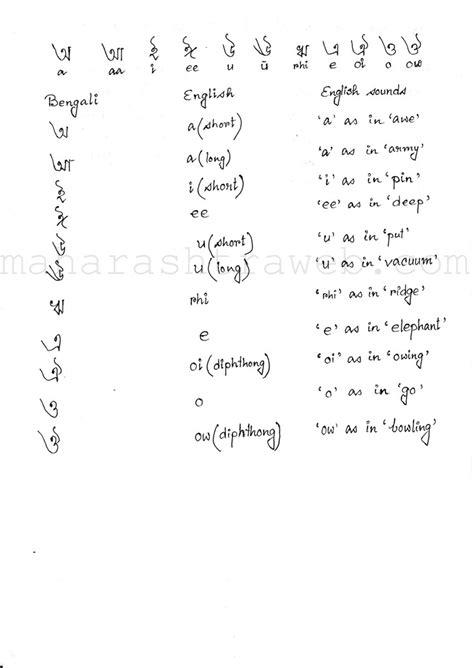 অ আ ই ঈ উ ঊ ঋ এ ঐ ও ঔ
a aa i ee u ū rhi e oi o ow
Bengali English English sounds
অ a (short) 'a' as in 'awe'
আ a (long) 'a' as in 'army'
ই i (short) 'i' as in 'pin'
ঈ ee 'ee' as in 'deep'
উ u (short) 'u' as in 'put'
ঊ u (long) 'u' as in 'vacuum'
maharashtraweb.com
ঋ rhi 'rhi' as in 'ridge'
এ e 'e' as in 'elephant'
ঐ oi (diphthong) 'oi' as in 'owing'
ও o 'o' as in 'go'
ঔ ow (diphthong) 'ow' as in 'bowling'